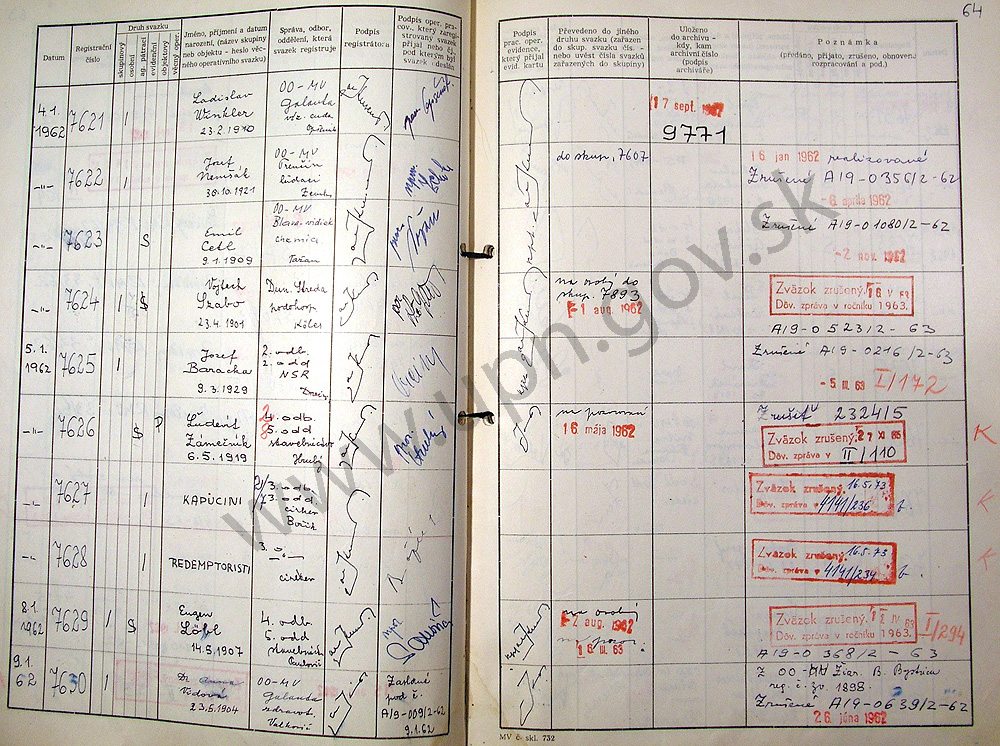 64
Datum
Registrační číslo
Druh svazku
skupinový
osobní
ag. pátrací
evidenční
objektový
věcný oper.
Jméno, příjmení a datum
narození, (název skupiny
neb objektu - heslo věc-
ného operativního svazku)
Správa, odbor,
oddělení, která
svazek registruje
Podpis
registrátora
Podpis oper. pra-
cov., který zaregi-
stroval svazek
přijal nebo čj.
pod kterým byl
svazek zaslán
Podpis
prac. oper.
evidence,
který přijal
evid. kartu
Převedeno do jiného
druhu svazku (zařazen
do skup. svazku čís. -
nebo uvést čísla svazků
zařazených do skupiny)
Uloženo
do archivu -
kdy, kam
archivní číslo
(podpis
archiváře)
Poznámka
(předáno, přijato, zrušeno, obnoveno
rozpracování a pod.)
4.1.
1962
7621
Ladislav
Winkler
23.2.1910
OO-MV
Galanta
17 sept. 1962
9771
7622
Jozef
Nemšák
30.10.1921
OO-MV
Trenčín
ľudaci
do skup. 7607
16 jan 1962 realizované
Zrušené A19-0356/2-62
-6 apríla 1962
7623
S
Emil
Cetl
9.1.1909
OO-MV
Blava-vidiek
chemica
Zrušené A19-01080/2-62
-2 nov. 1962
7624
S
Vojtech
Szabo
23.4.1901
Dun. Streda
na osoby do
skup. 7893
-1 aug. 1962
Zväzok zrušený.
Dôv. zpráva v ročníku 1963.
A19-0523/2-63
5.1.
1962
7625
Jozef
Baracka
9.3.1929
2. odb.
2. odd
NSR
Zrušené A19-0216/2-63
-5 III. 63 I/172
7626
S
P
Ľudevít
Zámečník
6.5.1919
4. odb.
5. odd
stavebníctvo
Hrubý
16 mája 1962
Zrušiť 23241/5
Zväzok zrušený.
Dôv. zpráva v II/110
K
7627
KAPUCINI
3. odb.
3. odd.
cirkev
Zväzok zrušený. 16.5.73
Dôv. zpráva v 4141/236
K
7628
REDEMPTORISTI
3.
cirkev
Zväzok zrušený. 16.5.73
Dôv. zpráva v 4141/234
K
8.1.
1962
7629
S
Eugen
Löbl
14.5.1907
4. odb.
5. odd
na osobný
-2 aug. 1962
16 III. 63
Zväzok zrušený.
Dôv. zpráva v ročníku 1963.
I/294
A19-0368/2-63
9.1.
62
7630
Dr. Anna
Vidová
23.5.1904
OO-MV
Galanta
zdravot.
Zaslané
pod č.
A19-009/2-62
9.1.62
Z OO-MV Žiar. B. Bystrica
reg. č. zv. 1898.
Zrušené A19-0639/2-62
26 júna 1962
MV č. skl. 732
www.upn.gov.sk